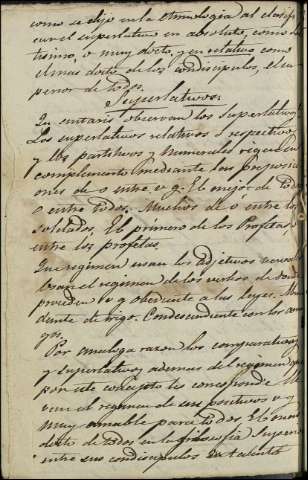 como se dijo en la etimologia al clasifi
car el superlativo en absoluto, como doc
tisimo, o muy docto, y en relativo como
el mas docto de los condiscipulos, el su
perior de todos.
Superlativos.
Que sintaxis observan los superlativos
Los superlativos relativos o respectivos
y los partitivos y numerales rigen su
complemento mediante las preposici
ones de o entre. v. g. El mejor de todos
o entre todos. Muchos de o entre los
soldados. El primero de los Profetas
entre los profetas.
Que regimen usan los adjetivos verbales
Usan el regimen de los verbos de donde
proceden v. g. obediente a las leyes.
dente de trigo. Condescendiente con los ami
gos.
Por analoga razon los comparativos
y superlativos, ademas del regimen que
por este concepto les corresponde
ven el regimen de sus positivos v. g.
muy amable para todos. El mas
docto de todos en la filosofia. Superior
entre sus condiscipulos en talento